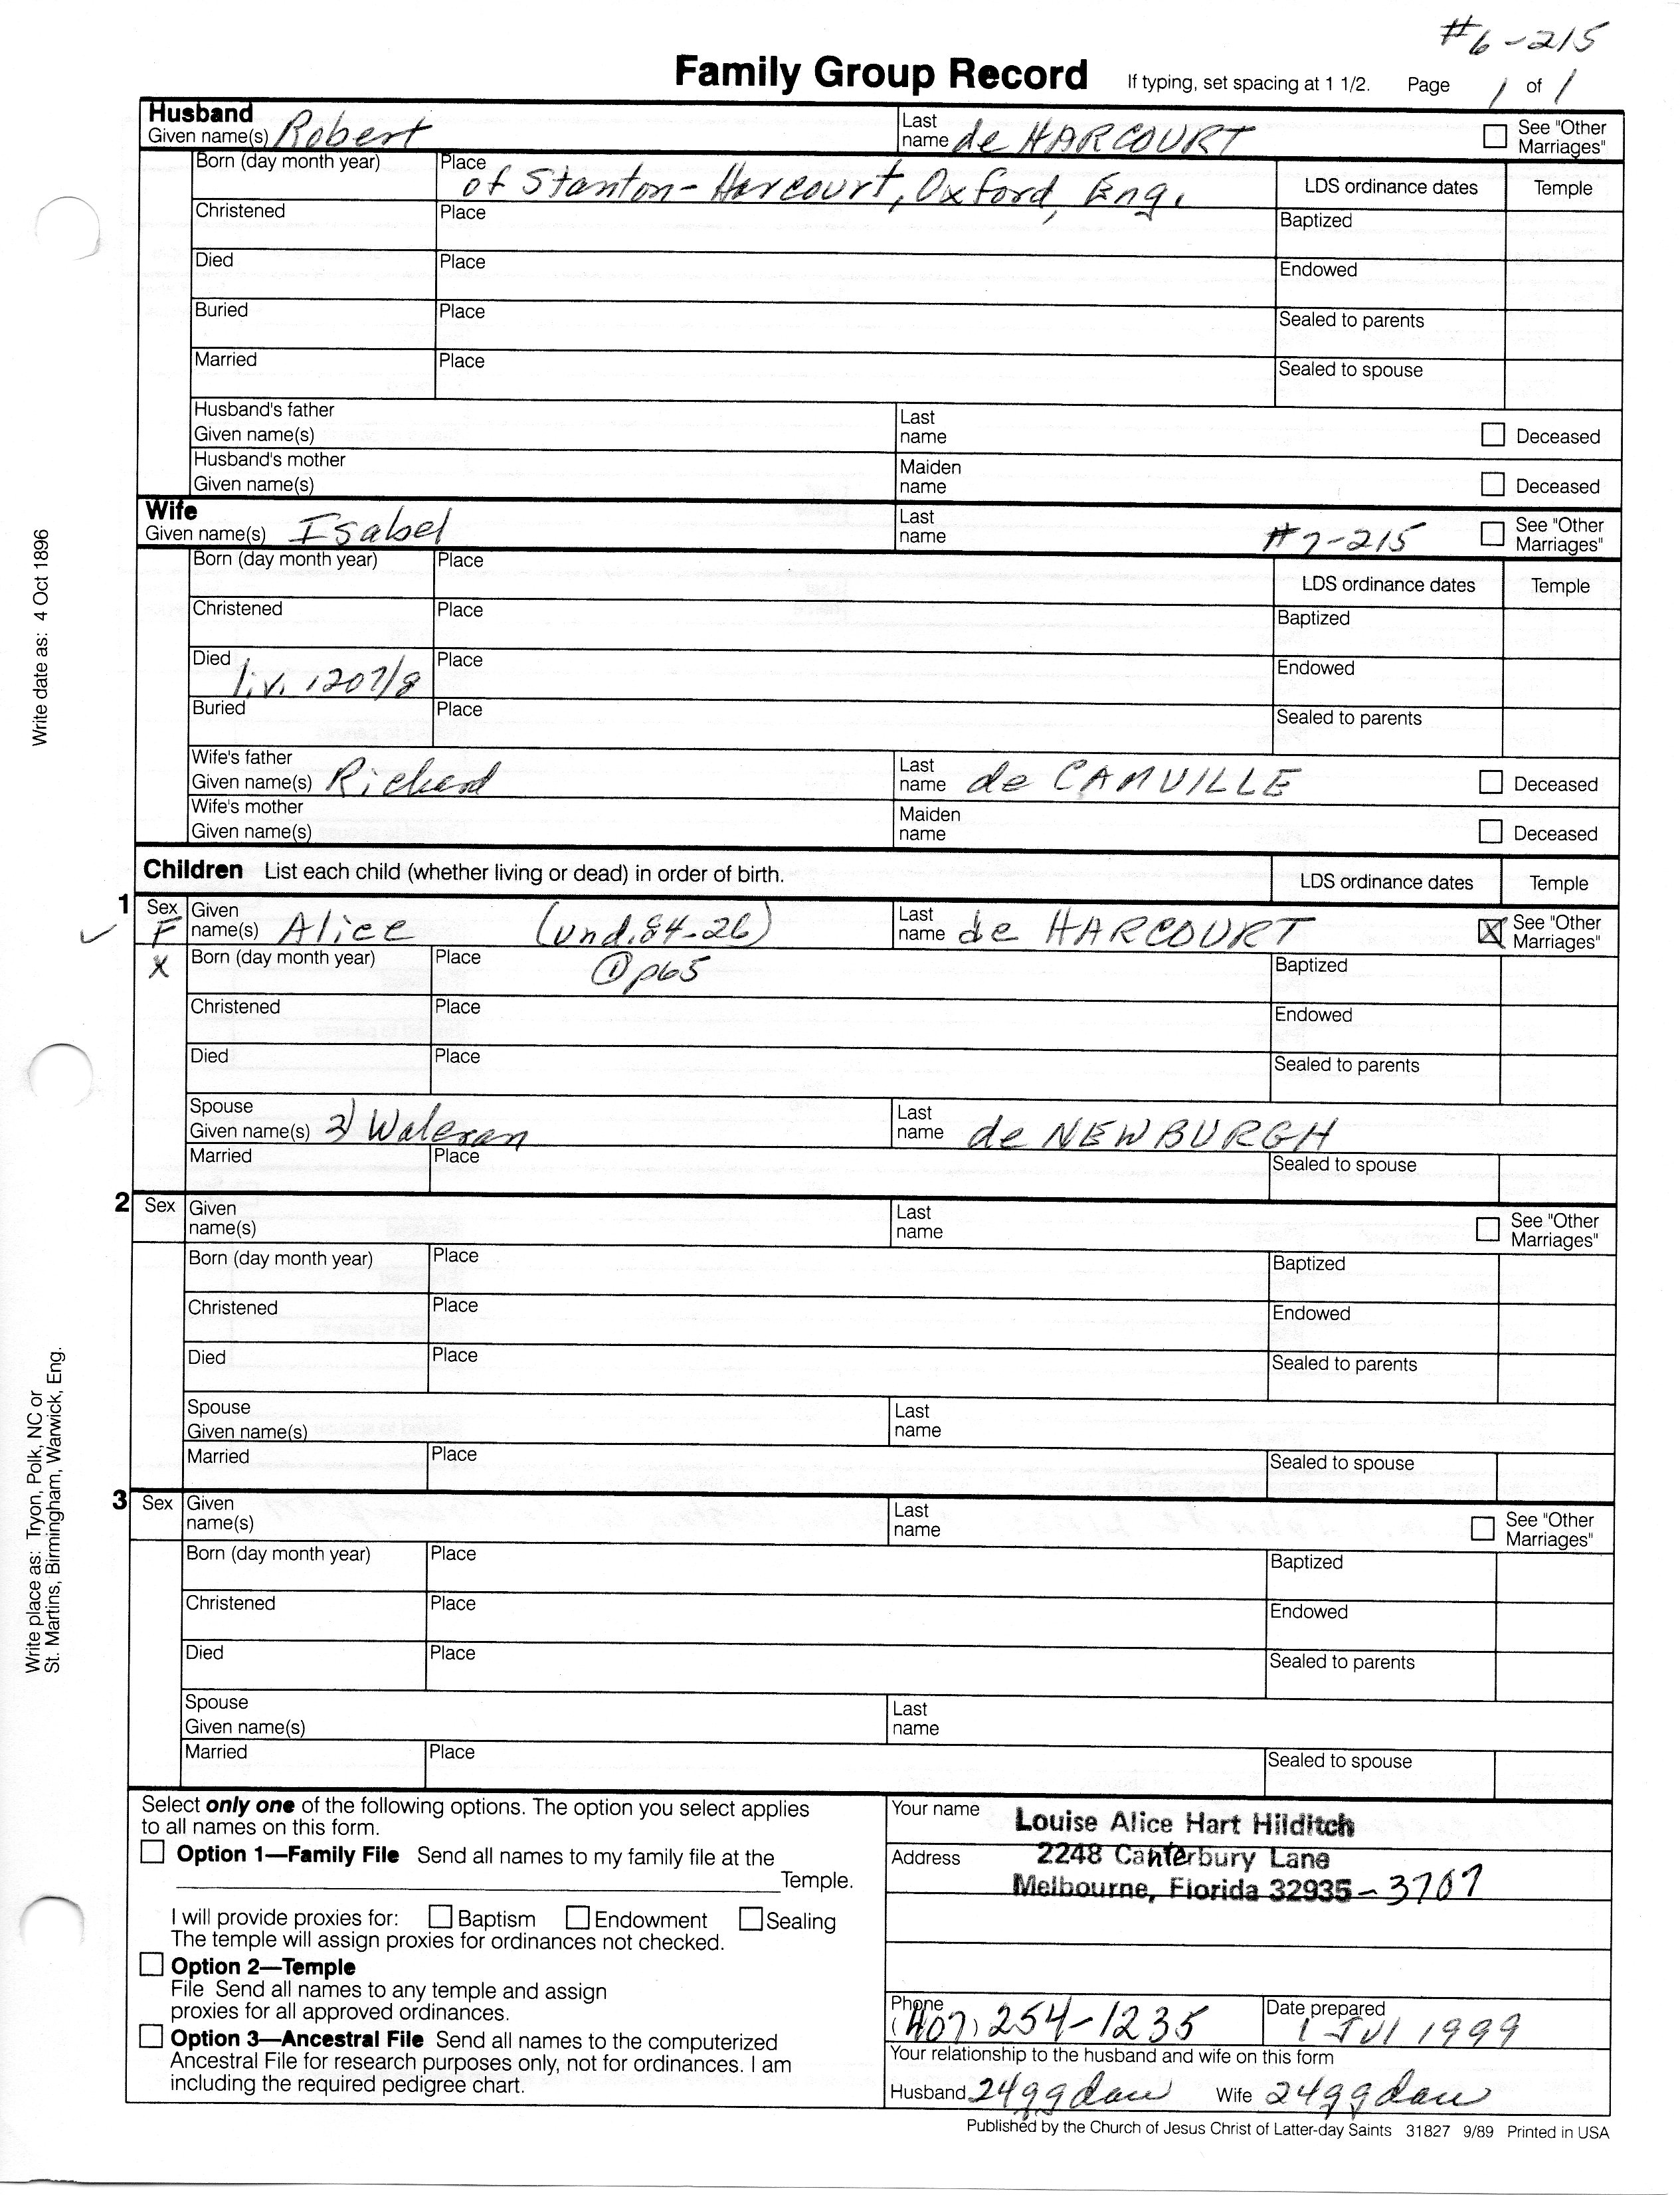 #6-215
Family Group Record If typing, set spacing at 1 1/2. Page 1 of 1
Husband
Given name(s) Robert
Last name de HARCOURT
See "Other Marriages"
Born (day month year)
Place of Stanton-Harcourt, Oxford, Eng.
LDS ordinance dates Temple
Christened Place Baptized
Died Place Endowed
Buried Place Sealed to parents
Married Place Sealed to spouse
Husband's father
Given name(s)
Last name
Deceased
Husband's mother
Given name(s)
Maiden name
Deceased
Wife
Given name(s) Isabel
Last name
#7-215
See "Other Marriages"
Born (day month year) Place LDS ordinance dates Temple
Christened Place Baptized
Died liv. 1207/8 Place Endowed
Buried Place Sealed to parents
Wife's father
Given name(s) Richard
Last name de CAMVILLE
Deceased
Wife's mother
Given name(s)
Maiden name
Deceased
Children List each child (whether living or dead) in order of birth. LDS ordinance dates Temple
1 Sex F
Given name(s) Alice (und. 84-26)
Last name de HARCOURT
X See "Other Marriages"
X Born (day month year) Place ① p65 Baptized
Christened Place Endowed
Died Place Sealed to parents
Spouse
Given name(s) 2) Waleran
Last name de NEWBURGH
Married Place Sealed to spouse
2 Sex Given name(s) Last name See "Other Marriages"
Born (day month year) Place Baptized
Christened Place Endowed
Died Place Sealed to parents
Spouse
Given name(s)
Last name
Married Place Sealed to spouse
3 Sex Given name(s) Last name See "Other Marriages"
Born (day month year) Place Baptized
Christened Place Endowed
Died Place Sealed to parents
Spouse
Given name(s)
Last name
Married Place Sealed to spouse
Select only one of the following options. The option you select applies
to all names on this form.
Option 1—Family File Send all names to my family file at the
Temple.
I will provide proxies for: Baptism Endowment Sealing
The temple will assign proxies for ordinances not checked.
Option 2—Temple
File Send all names to any temple and assign
proxies for all approved ordinances.
Option 3—Ancestral File Send all names to the computerized
Ancestral File for research purposes only, not for ordinances. I am
including the required pedigree chart.
Your name Louise Alice Hart Hilditch
Address 2248 Canterbury Lane
Melbourne, Florida 32935-3707
Phone (407) 254-1235
Date prepared 1 Jul 1999
Your relationship to the husband and wife on this form
Husband 24ggdau Wife 24ggdau
Published by the Church of Jesus Christ of Latter-day Saints 31827 9/89 Printed in USA
Write date as: 4 Oct 1896
Write place as: Tryon, Polk, NC or
St. Martins, Birmingham, Warwick, Eng.